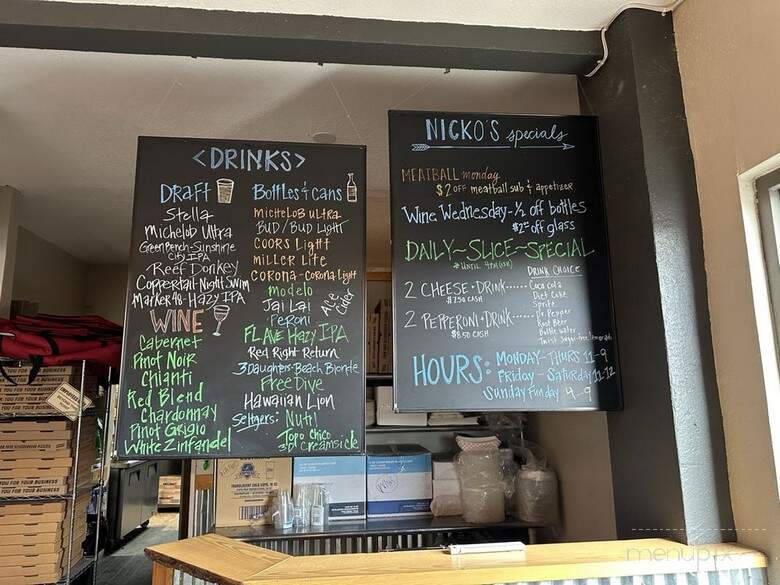 <DRINKS>
DRAFT
Stella
Michelob Ultra
GreenBench-Sunshine
City IPA
Reef Donkey
Coppertail Night Swim
Marker 48-Hazy IPA
WINE
Cabernet
Pinot Noir
Chianti
Red Blend
Chardonnay
Pinot Grigio
White Zinfandel
Bottles & Cans
Michelob Ultra
BUD/Bud Light
COORS Light
MILLER Lite
Corona-Corona Light
Modelo
Jai Lai
Peroni
Ace Cider
FLAVE Hazy IPA
Red Right Return
3 Daughters-Beach Blonde
Free Dive
Hawaiian Lion
Seltzers: Nutrl
Topo Chico
3D Creamsicle
NICKO'S specials
MEATBALL monday
$2 OFF meatball sub & appetizer
Wine Wednesday-½ off bottles
$2 off glass
DAILY~SLICE~SPECIAL
DRINK CHOICE
2 CHEESE + DRINK......
2 PEPPERONI + DRINK.....
$8.50 CASH
Coca Cola
Diet Coke
Sprite
Dr. Pepper
Root Beer
Bottle water
HOURS: MONDAY-THURS 11-9
Friday-Saturday 11-12
Sunday Funday
YOU FOR YOUR BUSINESS
menupix